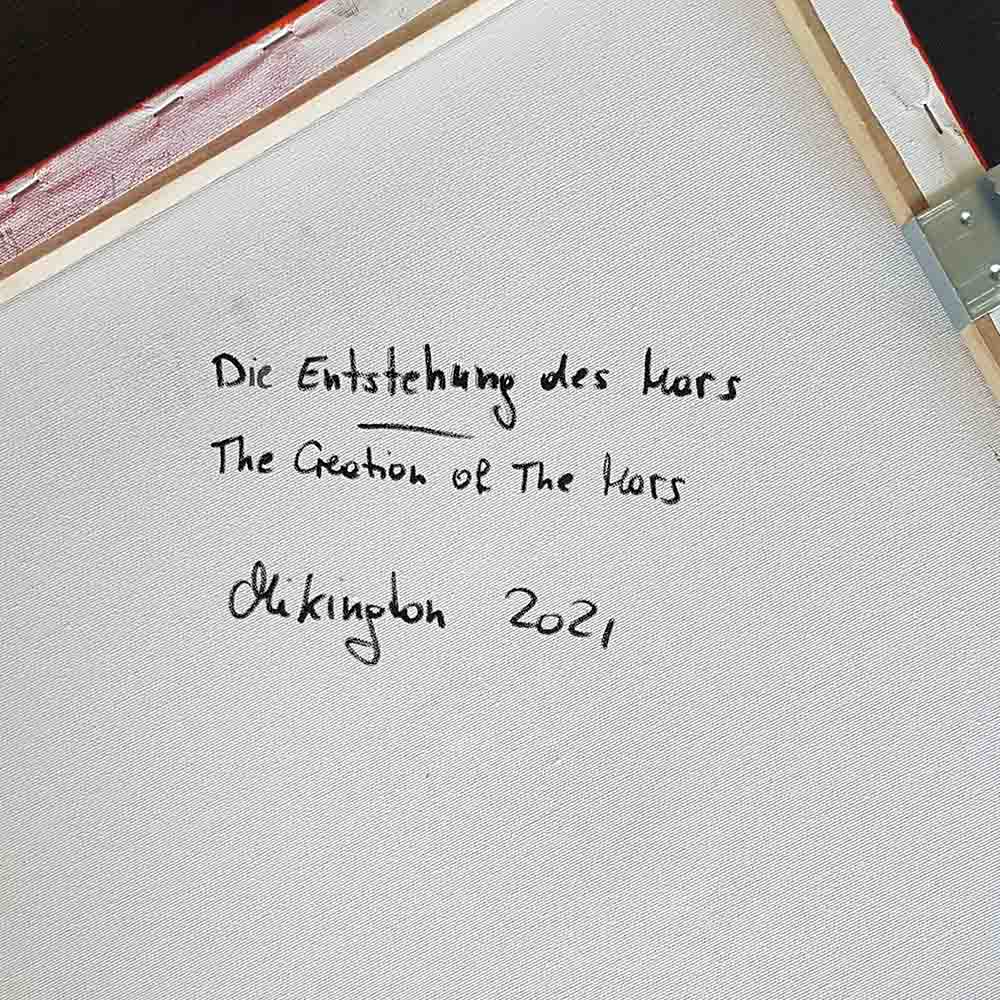 Die Entstehung des Mars
The Creation of The Mars
Mikington 2021